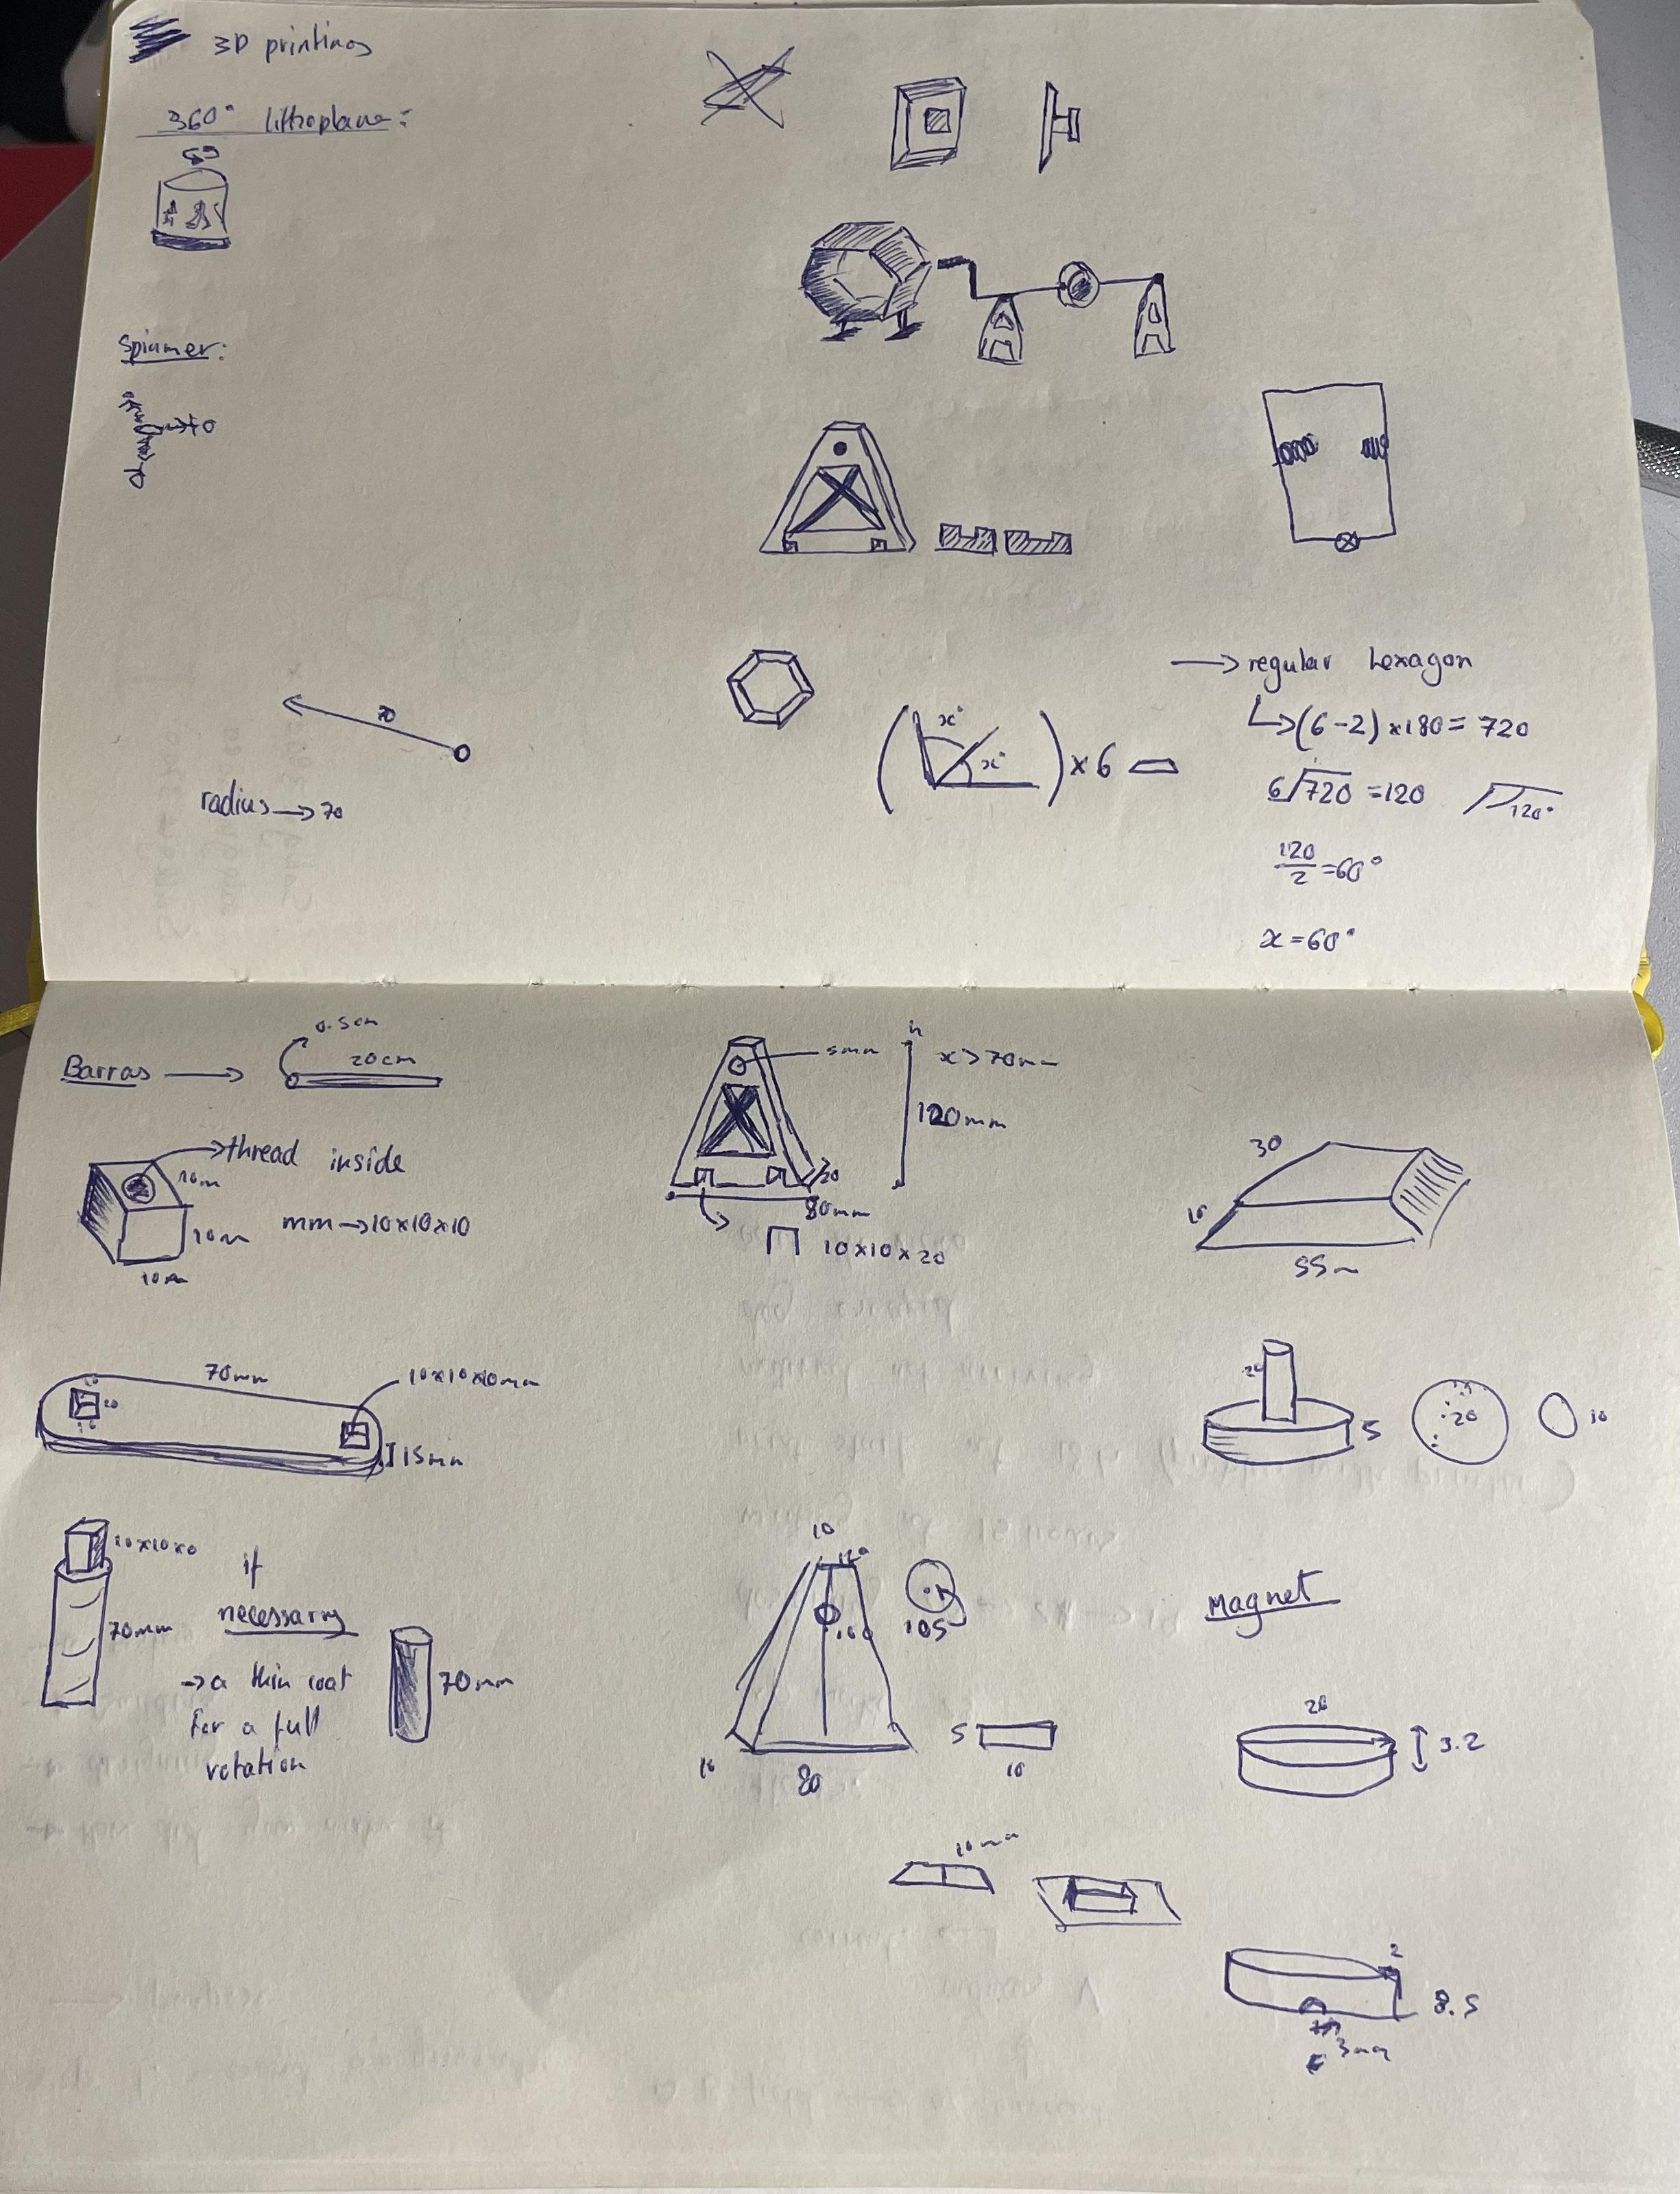 3D printings
360° lithoplane:
Spinner:
70
radius → 70
→ regular hexagon
↳ (6-2) x180 = 720
6/720 = 120
120°
120/2 = 60°
x = 60°
( x° x° ) x 6
Barras →
0.5cm
20cm
→ thread inside
10m
10m
10m
mm → 10x10x10
70mm
10x10x10mm
15mm
70mm
if
necessary
→ a thin coat
for a full
rotation
70mm
5mm
h
x > 70m
120mm
20
80mm
10x10x20
10
10
80
5
10
10mm
30
10
55m
5
20
10
Magnet
20
3.2
2
8.5
3mm